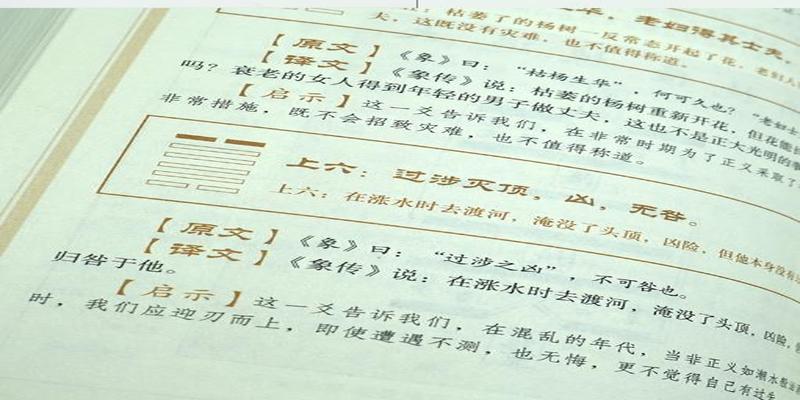 华，老妇得其士夫，
枯萎了的杨树一反常态开起了花，老妇人
夫，这既没有灾难，也不值得称道。
【原文】《象》曰：“枯杨生华”，何可久也？“老妇士
【译文】《象传》说：枯萎的杨树重新开花，但花能
吗？衰老的女人得到年轻的男子做丈夫，这也不是正大光明的
【启示】这一爻告诉我们，在非常时期为了正义采取了
非常措施，既不会招致灾难，也不值得称道。
上六：过涉灭顶，凶，无咎。
上六：在涨水时去渡河，淹没了头顶，凶险，但他本身没有
【原文】《象》曰：“过涉之凶”，不可咎也。
【译文】《象传》说：在涨水时去渡河，淹没了头顶，凶险，
归咎于他。
【启示】这一爻告诉我们，在混乱的年代，当非正义如潮水般
时，我们应迎刃而上，即使遭遇不测，也无悔，更不觉得自己有过